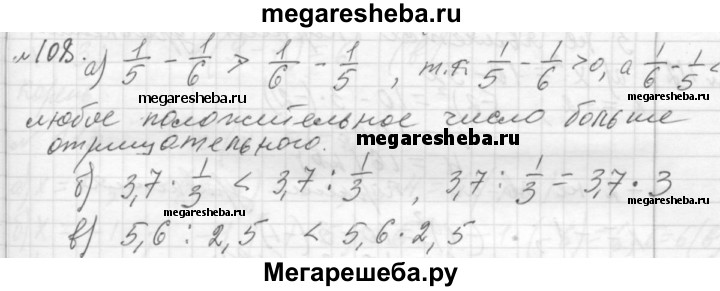 megaresheba.ru
№108. а) 1/5 - 1/6 > 1/6 - 1/5, т.к 1/5 - 1/6 > 0, а 1/6 - 1/5 <
megaresheba.ru megaresheba.ru
любое положительное число больше
отрицательного. megaresheba.ru
б) 3,7 · 1/3 < 3,7 : 1/3, 3,7 : 1/3 = 3,7 · 3
megaresheba.ru megaresheba.ru
в) 5,6 : 2,5 < 5,6 · 2,5
Мегарешеба.ру